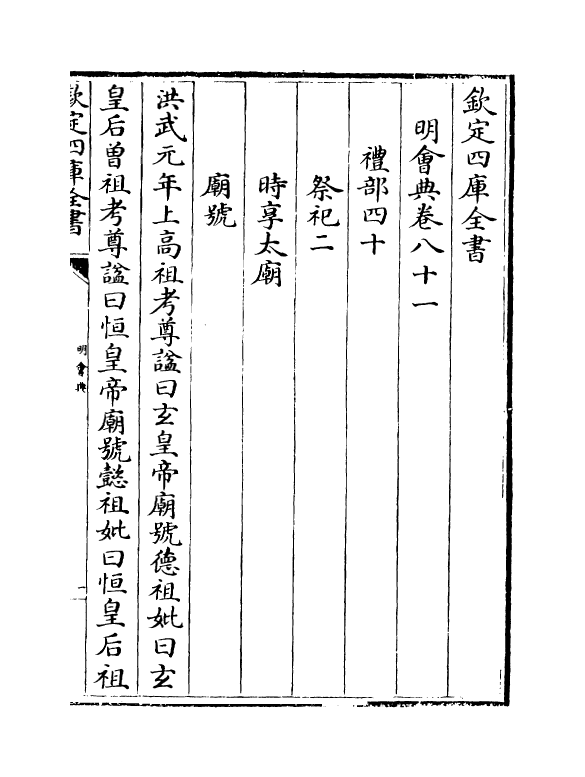 欽定四庫全書
明會典卷八十一
禮部四十
祭祀二
時享太廟
廟號
洪武元年上高祖考尊謚曰玄皇帝廟號德祖妣曰玄
皇后曾祖考尊謚曰恒皇帝廟號懿祖妣曰恒皇后祖
欽定四庫全書
明會典
一